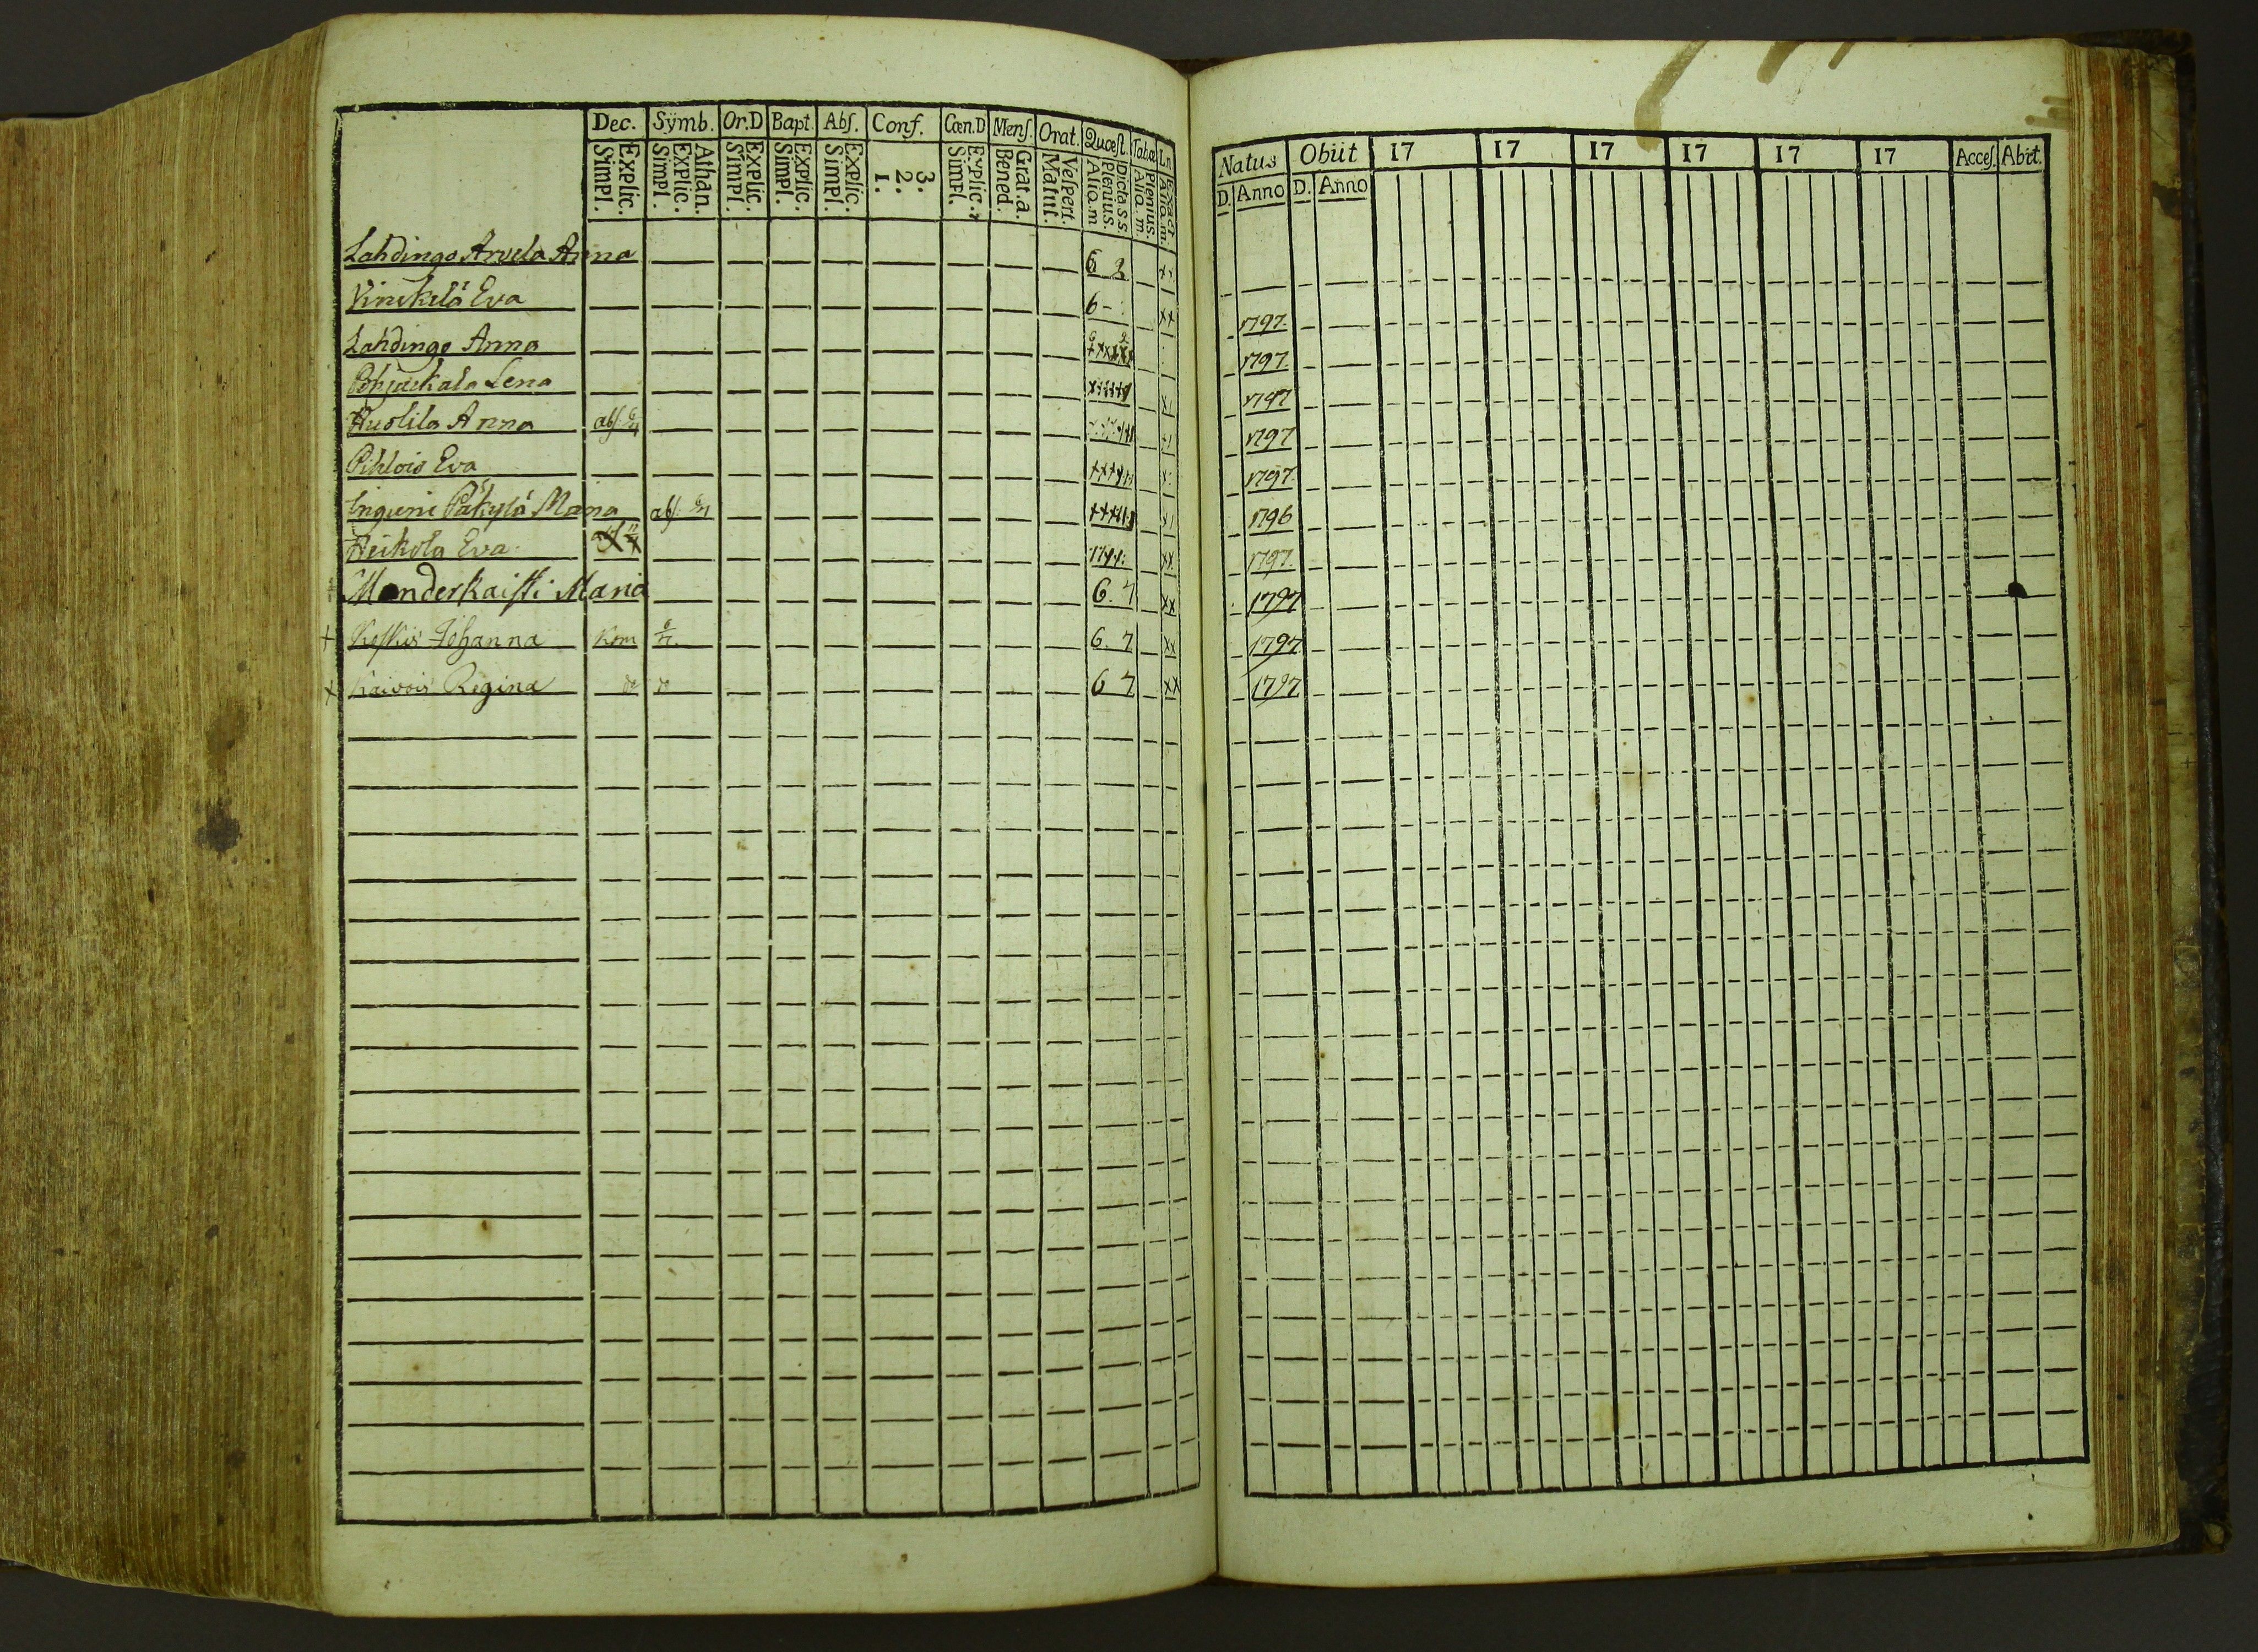 Dec. Symb. Or.D Bapt. Abs. Conf. Cœn.D Mens. Orat. Quæst. Taba Ln
Explic. Simpl. Athan. Explic. Simpl. Explic. Simpl. Explic. Simpl. Explic. Simpl. 3. 2. 1. Explic. Simpl. Grat.a. Bened. Vespert. Matut. Dicta s.s. Plenius. Alia.m Plenius. Alia.m. Exact Alia.m.
Lahdingo Arvela Anna 6
Vinikelä Eva 6 -
Lahdingo Anna
Pohjaekala Lena
Huolila Anna abs.
Pihlois Eva
Inguni Päkylä Maria abs.
Heikola Eva
Manderkaisti Maria 6. 7 xx
+ Keskis Johanna Kom 6. 7 xx
x Kaivois Regina do do 6 7 xx
Natus Obiit 17 17 17 17 17 17 Acces. Abiit.
D. Anno D. Anno
1797.
1797.
1797
1797
1797.
1796
1797.
1797
1797
1797